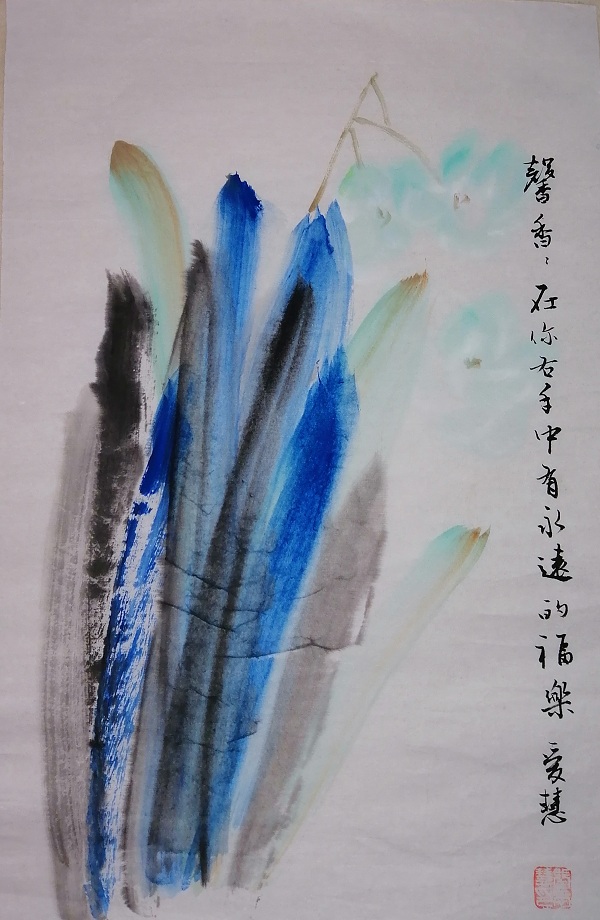 馨香、在你右手中有永遠的福樂 爱慧